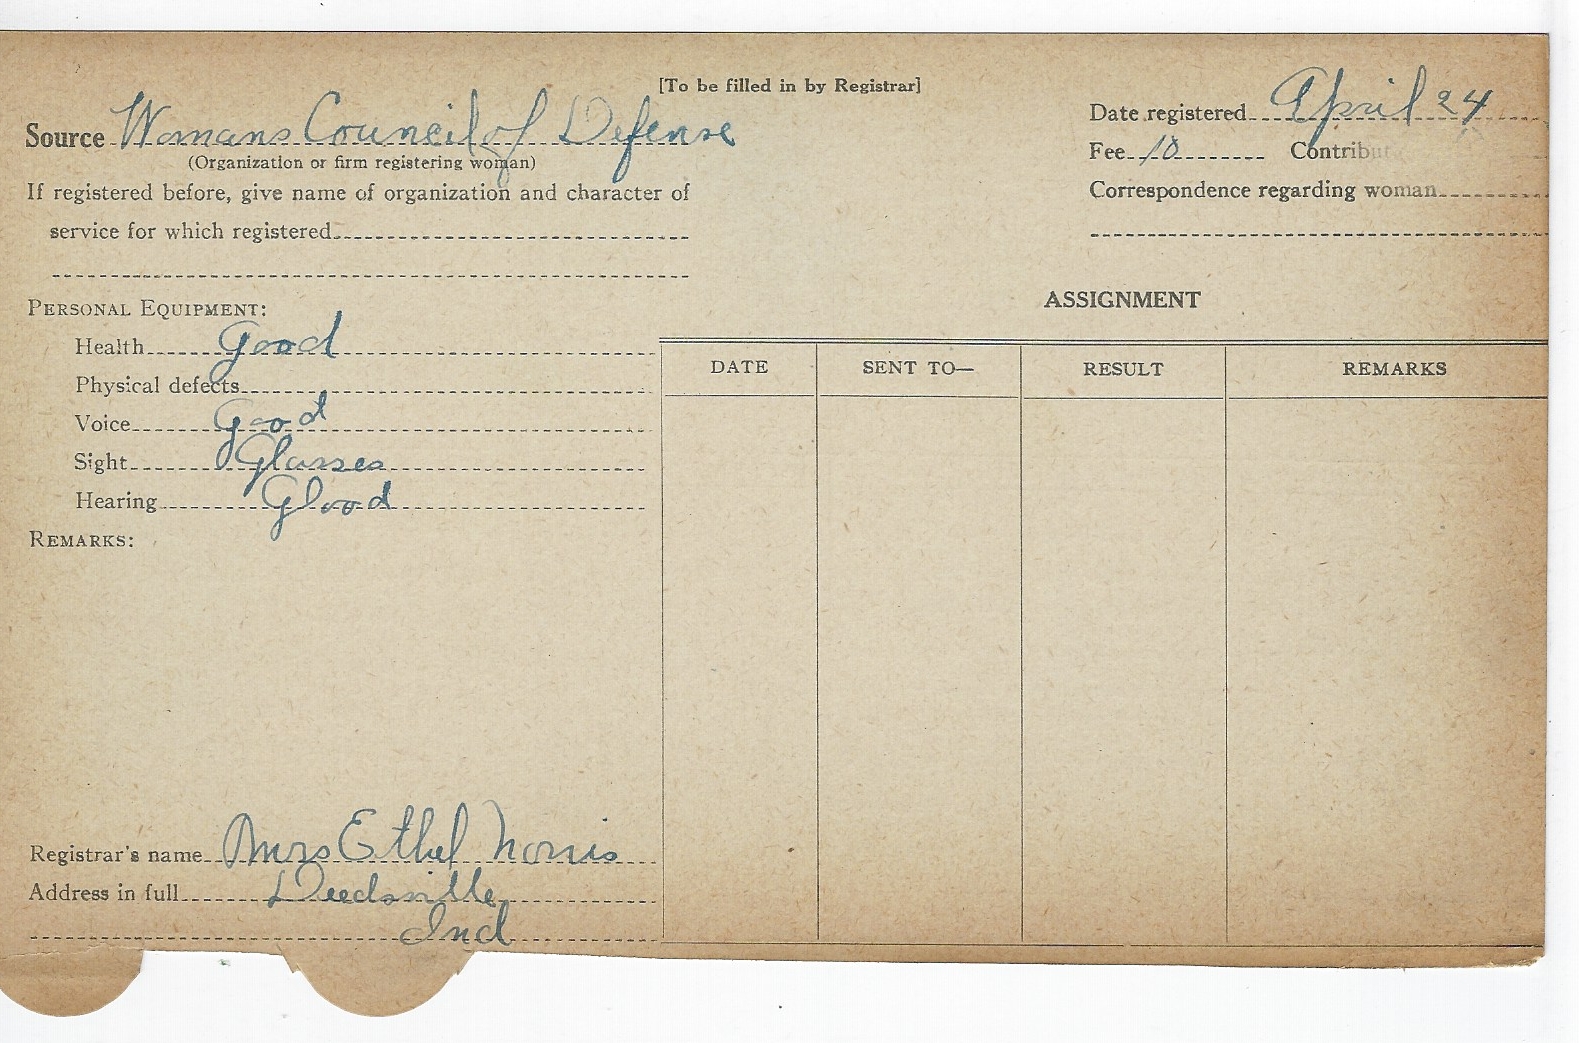 [To be filled in by Registrar]
Source Womans Council of Defense
(Organization or firm registering woman)
If registered before, give name of organization and character of
service for which registered
Date registered April 24
Fee 10 Contribut
Correspondence regarding woman
PERSONAL EQUIPMENT:
Health Good
Physical defects
Voice Good
Sight Glasses
Hearing Good
REMARKS:
ASSIGNMENT
DATE SENT TO— RESULT REMARKS
Registrar's name Mrs Ethel Norris
Address in full Deedsville
Ind